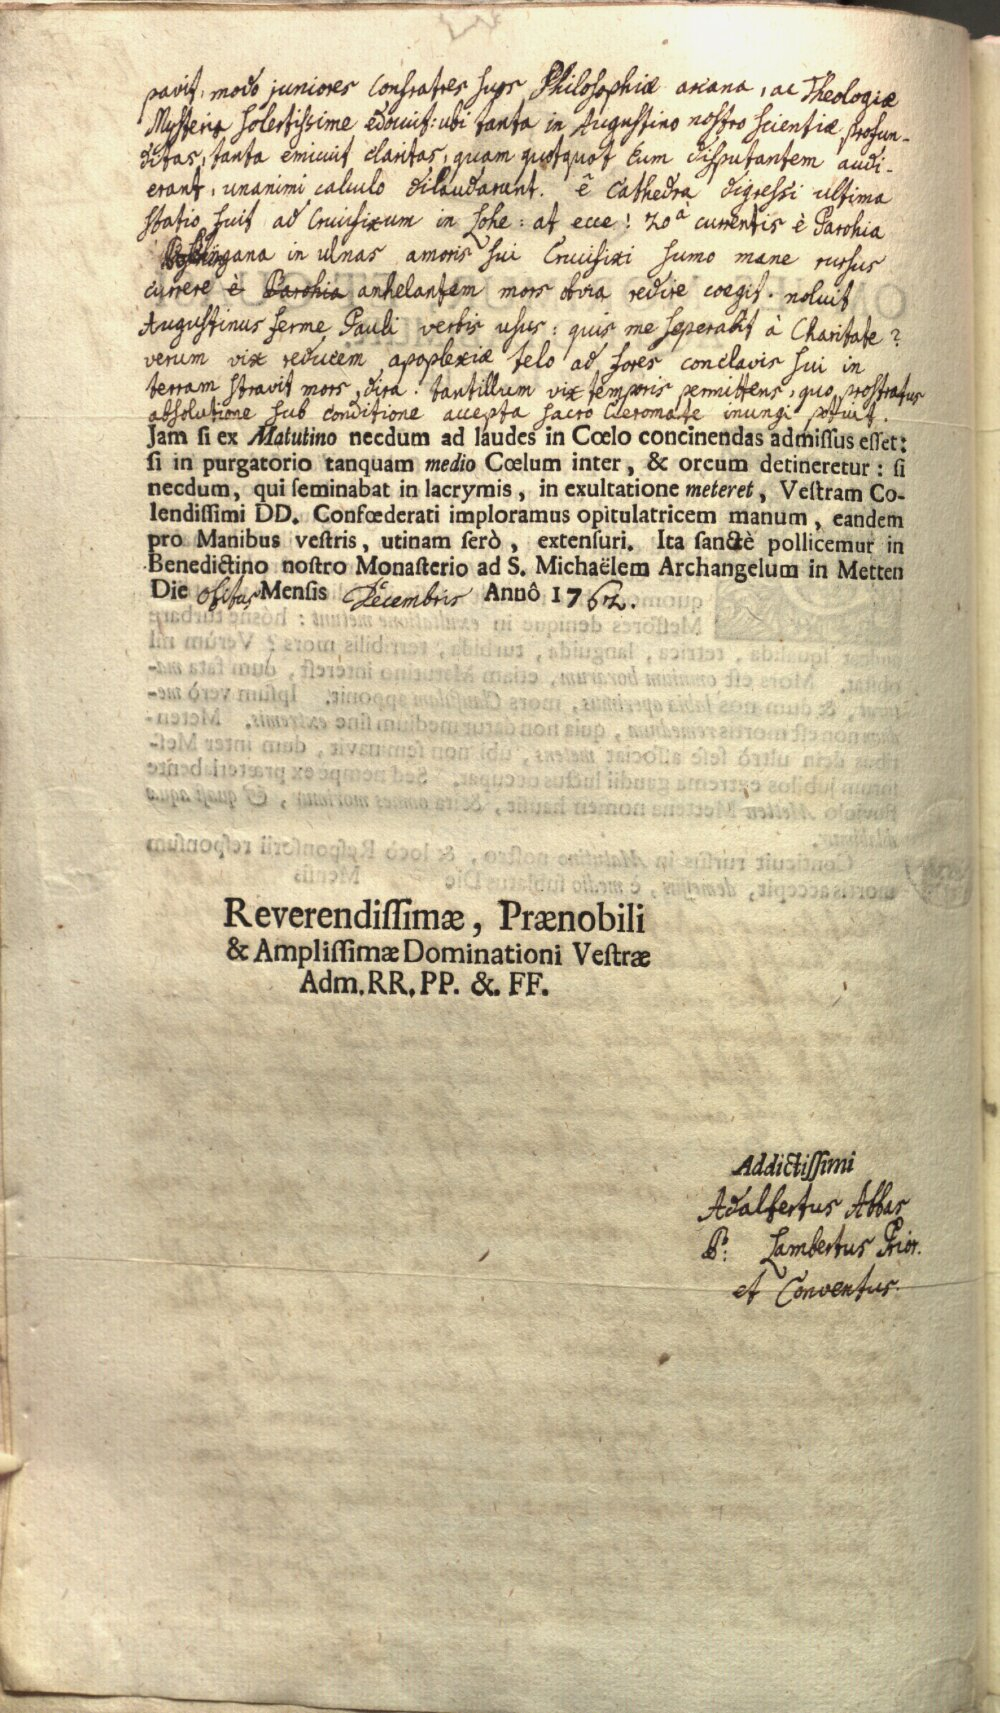 pavit, modo juniores Confratres suos Philosophiæ arcana, ac Theologiæ
Mysteria solertissime edocuit: ubi tanta in Augustino nostro scientiæ profun-
ditas, tanta emicuit claritas, quam quotquot Eum disputantem audi-
erant, unanimi calculo dilaudarunt. è Cathedra digressi ultima
statio fuit ad Crucifixum in Lohe: at ecce! 20â currentis è Parohia
in ulnas amoris sui Crucifixi summo mane rursus
currere è Parohia anhelantem mors obvia redire coegit. noluit
Augustinus ferme Pauli verbis usus: quis me seperabit à Charitate?
verum vix reducem, apoplexiæ telo ad fores conclavis sui in
terram stravit mors dira: tantillum vix temporis permittens, quo prostratus
absolutione sub conditione accepta sacro Ceromate inungi potuit.
Jam ſi ex Matutino necdum ad laudes in Cœlo concinendas admiſſus eſſet:
ſi in purgatorio tanquam medio Cœlum inter, & orcum detineretur: ſi
necdum, qui ſeminabat in lacrymis, in exultatione meteret, Veſtram Co-
lendiſſimi DD. Confœderati imploramus opitulatricem manum, eandem
pro Manibus veſtris, utinam ſerò, extenſuri. Ita ſanctè pollicemur in
Benedictino noſtro Monaſterio ad S. Michaëlem Archangelum in Metten
Die obitus Menſis Decembris Annô 1762.
Reverendiſſimæ, Prænobili
& Ampliſſimæ Dominationi Veſtræ
Adm. RR. PP. &. FF.
Addictiſſimi
Adalbertus Abbas
P: Lambertus Prior.
et Conventus.